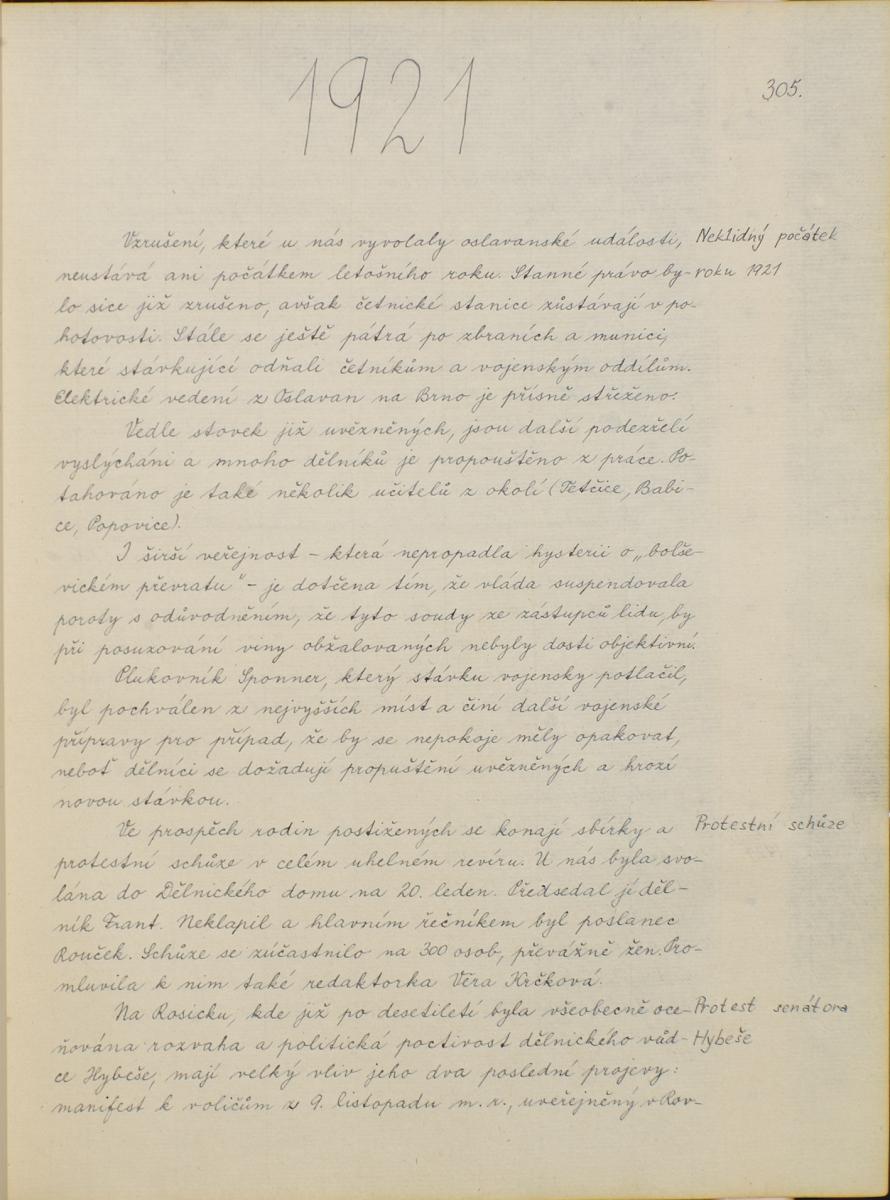 1921
305.
Vzrušení, které u nás vyvolaly oslavanské události,
Neklidný počátek
neustává ani počátkem letošního roku. Stanné právo by-
roku 1921
lo sice již zrušeno, avšak četnické stanice zůstávají v po-
hotovosti. Stále se ještě pátrá po zbraních a munici,
které stávkující odňali četníkům a vojenským oddílům.
Elektrické vedení z Oslavan na Brno je přísně střeženo.
Vedle stovek již uvězněných, jsou další podezřelí
vyslýcháni a mnoho dělníků je propouštěno z práce. Po-
tahováno je také několik učitelů z okolí (Tetčice, Babi-
ce, Popovice).
I širší veřejnost - která nepropadla hysterii o „bolše-
vickém převratu" - je dotčena tím, že vláda suspendovala
poroty s odůvodněním, že tyto soudy ze zástupců lidu, by
při posuzování viny obžalovaných nebyly dosti objektivní.
Plukovník Sponner, který stávku vojensky potlačil,
byl pochválen z nejvyšších míst a činí další vojenské
přípravy pro případ, že by se nepokoje měly opakovat,
neboť dělníci se dožadují propuštění uvězněných a hrozí
novou stávkou.
Ve prospěch rodin postižených se konají sbírky a
Protestní schůze
protestní schůze v celém uhelném revíru. U nás byla svo-
lána do Dělnického domu na 20. leden. Předsedal jí děl-
ník Frant. Neklapil a hlavním řečníkem byl poslanec
Rouček. Schůze se zúčastnilo na 300 osob, převážně žen. Pro-
mluvila k nim také redaktorka Věra Krčková.
Na Rosicku, kde již po desetiletí byla všeobecně oce-
Protest senátora
ňována rozvaha a politická poctivost dělnického vůd-
Hybeše
ce Hybeše, mají velký vliv jeho dva poslední projevy:
manifest k voličům z 9. listopadu m. r., uveřejněný v Rov-